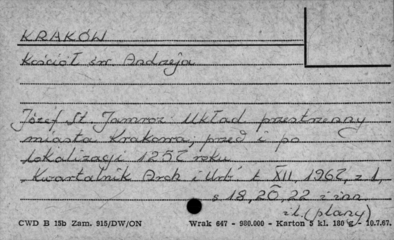 KRAKÓW
Kościół św. Andrzeja
Józef St. Jamroz Układ przestrzenny
miasta Krakowa, przed i po
lokalizacji 1257 roku
Kwartalnik Arch i Urb. t XII, 1967, z 1,
s 18, 20, 22 i inn
il. (plany)
CWD B 15b Zam. 915/DW/ON Wrak 647 - 980.000 - Karton 5 kl. 180 g - 10.7.67.